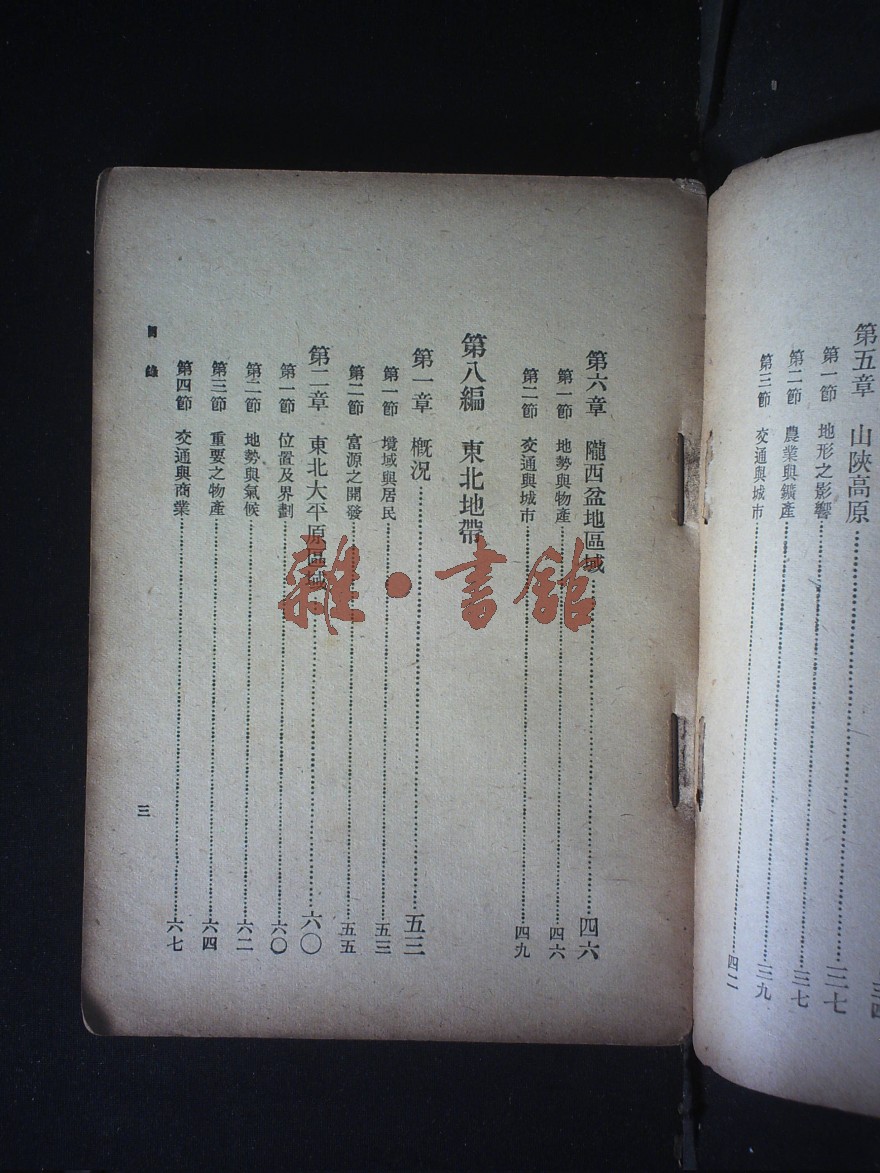 第五章 山陝高原……三七
第一節 地形之影響……三七
第二節 農業與鑛產……三九
第三節 交通與城市……四二
第六章 隴西盆地區域……四六
第一節 地勢與物產……四六
第二節 交通與城市……四九
第八編 東北地帶
第一章 概況……五三
第一節 境域與居民……五三
第二節 富源之開發……五五
第二章 東北大平原區域……六〇
第一節 位置及界劃……六〇
第二節 地勢與氣候……六二
第三節 重要之物產……六四
第四節 交通與商業……六七
目錄
三
雜·書館